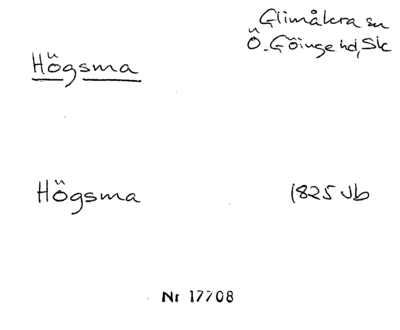 Glimåkra sn
Ö. Göinge hd, Sk
Högsma
Högsma 1825 Jb
Nr 17708